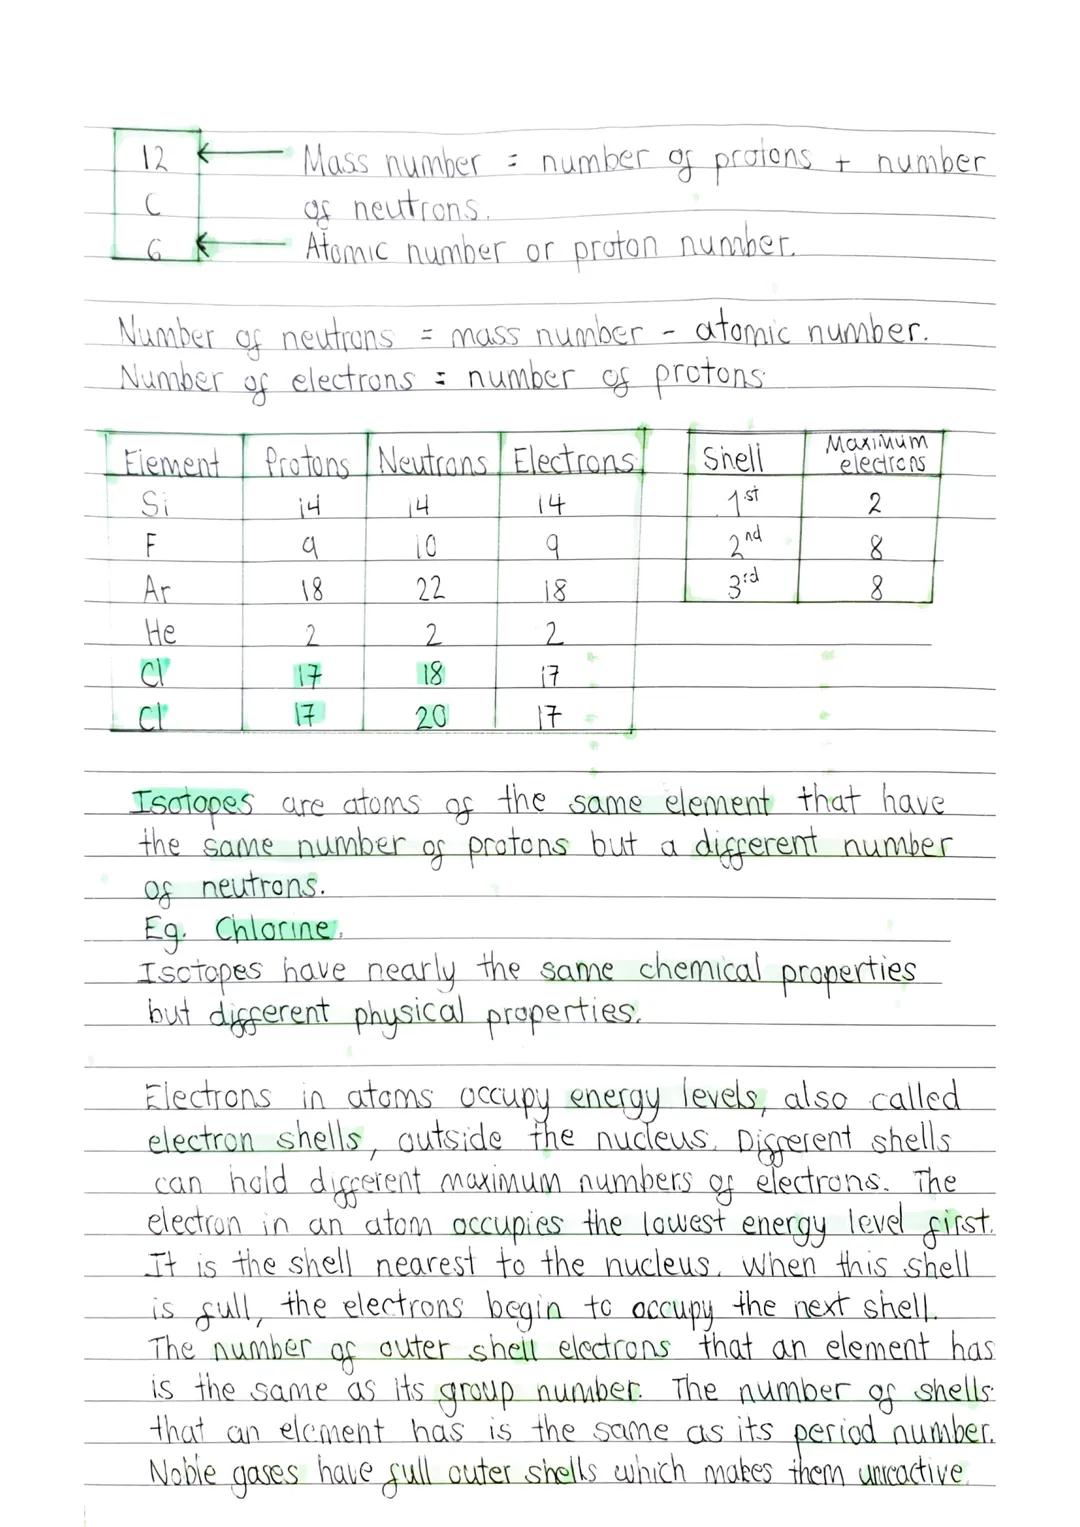 12
Mass number = number of protons + number
C
of neutrons.
6
Atomic number or proton number.
Number of neutrons = mass number - atomic number.
Number of electrons = number of protons.
Element Protons Neutrons Electrons
Si 14 14 14
F 9 10 9
Ar 18 22 18
He 2 2 2
Cl 17 18 17
Cl 17 20 17
Shell Maximum electrons
1st 2
2nd 8
3rd 8
Isotopes are atoms of the same element that have
the same number of protons but a different number
of neutrons.
Eg. Chlorine.
Isotopes have nearly the same chemical properties
but different physical properties.
Electrons in atoms occupy energy levels, also called
electron shells, outside the nucleus. Different shells
can hold different maximum numbers of electrons. The
electron in an atom occupies the lowest energy level first.
It is the shell nearest to the nucleus. When this shell
is full, the electrons begin to occupy the next shell.
The number of outer shell electrons that an element has
is the same as its group number. The number of shells
that an element has is the same as its period number.
Noble gases have full outer shells which makes them unreactive.